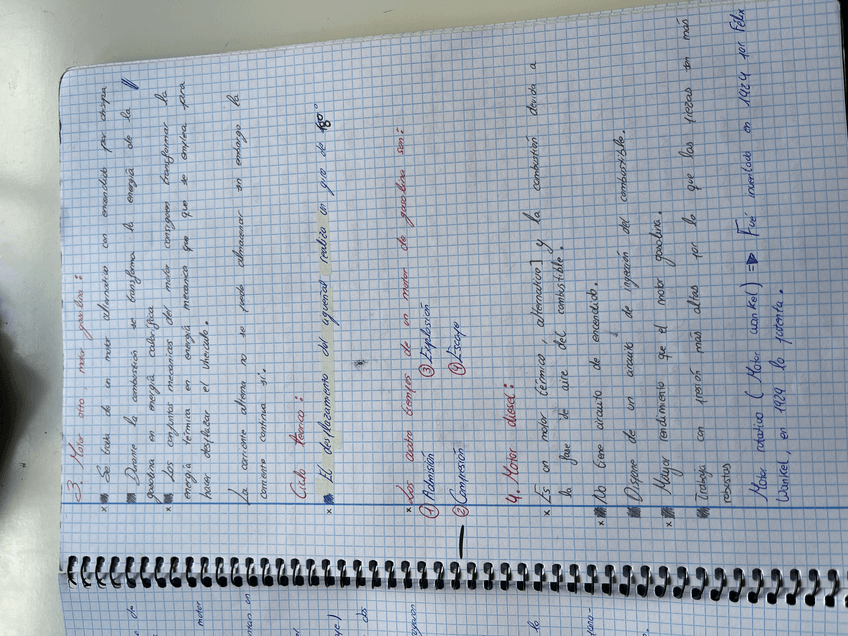 3. Motor otto, motor gasolina:
x Se trata de un motor alternativo con encendido por chispa
Durante la combustión se transforma la energía de la
gasolina en energía calorífica
x Los conjuntos mecanicos del motor consiguen transformar la
energía térmica en energía mecanica que que se emplea para
hacer desplazar el vheiculo.
La corriente alterna no se puede almacenar sin embargo la
corriente continua sí.
Ciclo teorico:
x El desplazamento del cigueñal realiza un giro de 180°
x Los cuatro tiempos de un motor de gasolina son:
① Admisión ③ Explosión
② Compresión ④ Escape
4. Motor diesel:
x Es un motor térmico, alternativo] y la combustión devida a
la fase de aire del combustible.
x No tiene circuito de encendido.
Dispone de un circuito de injeción del combustible.
x Mayor rendimiento que el motor gasolina.
Trabaja con presión mas altas por lo que las piezas son mas
robustas
Motor rotativo (Motor wankel) => Fué inventado en 1924 por Félix
Wankel, en 1929 lo patenta.
de
motor
do